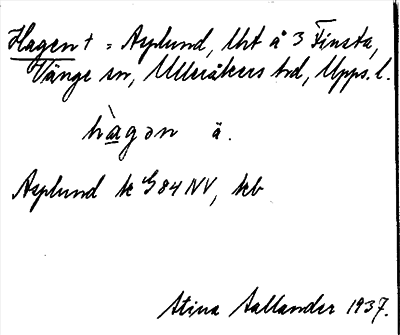 Hagen † = Asplund, lht å 3 Finsta,
Vänge sn, Ulleråkers hd, Upps. l.
hàgɔn ä.
Asplund bt G 84 NV, kb
Stina Sallander 1937.